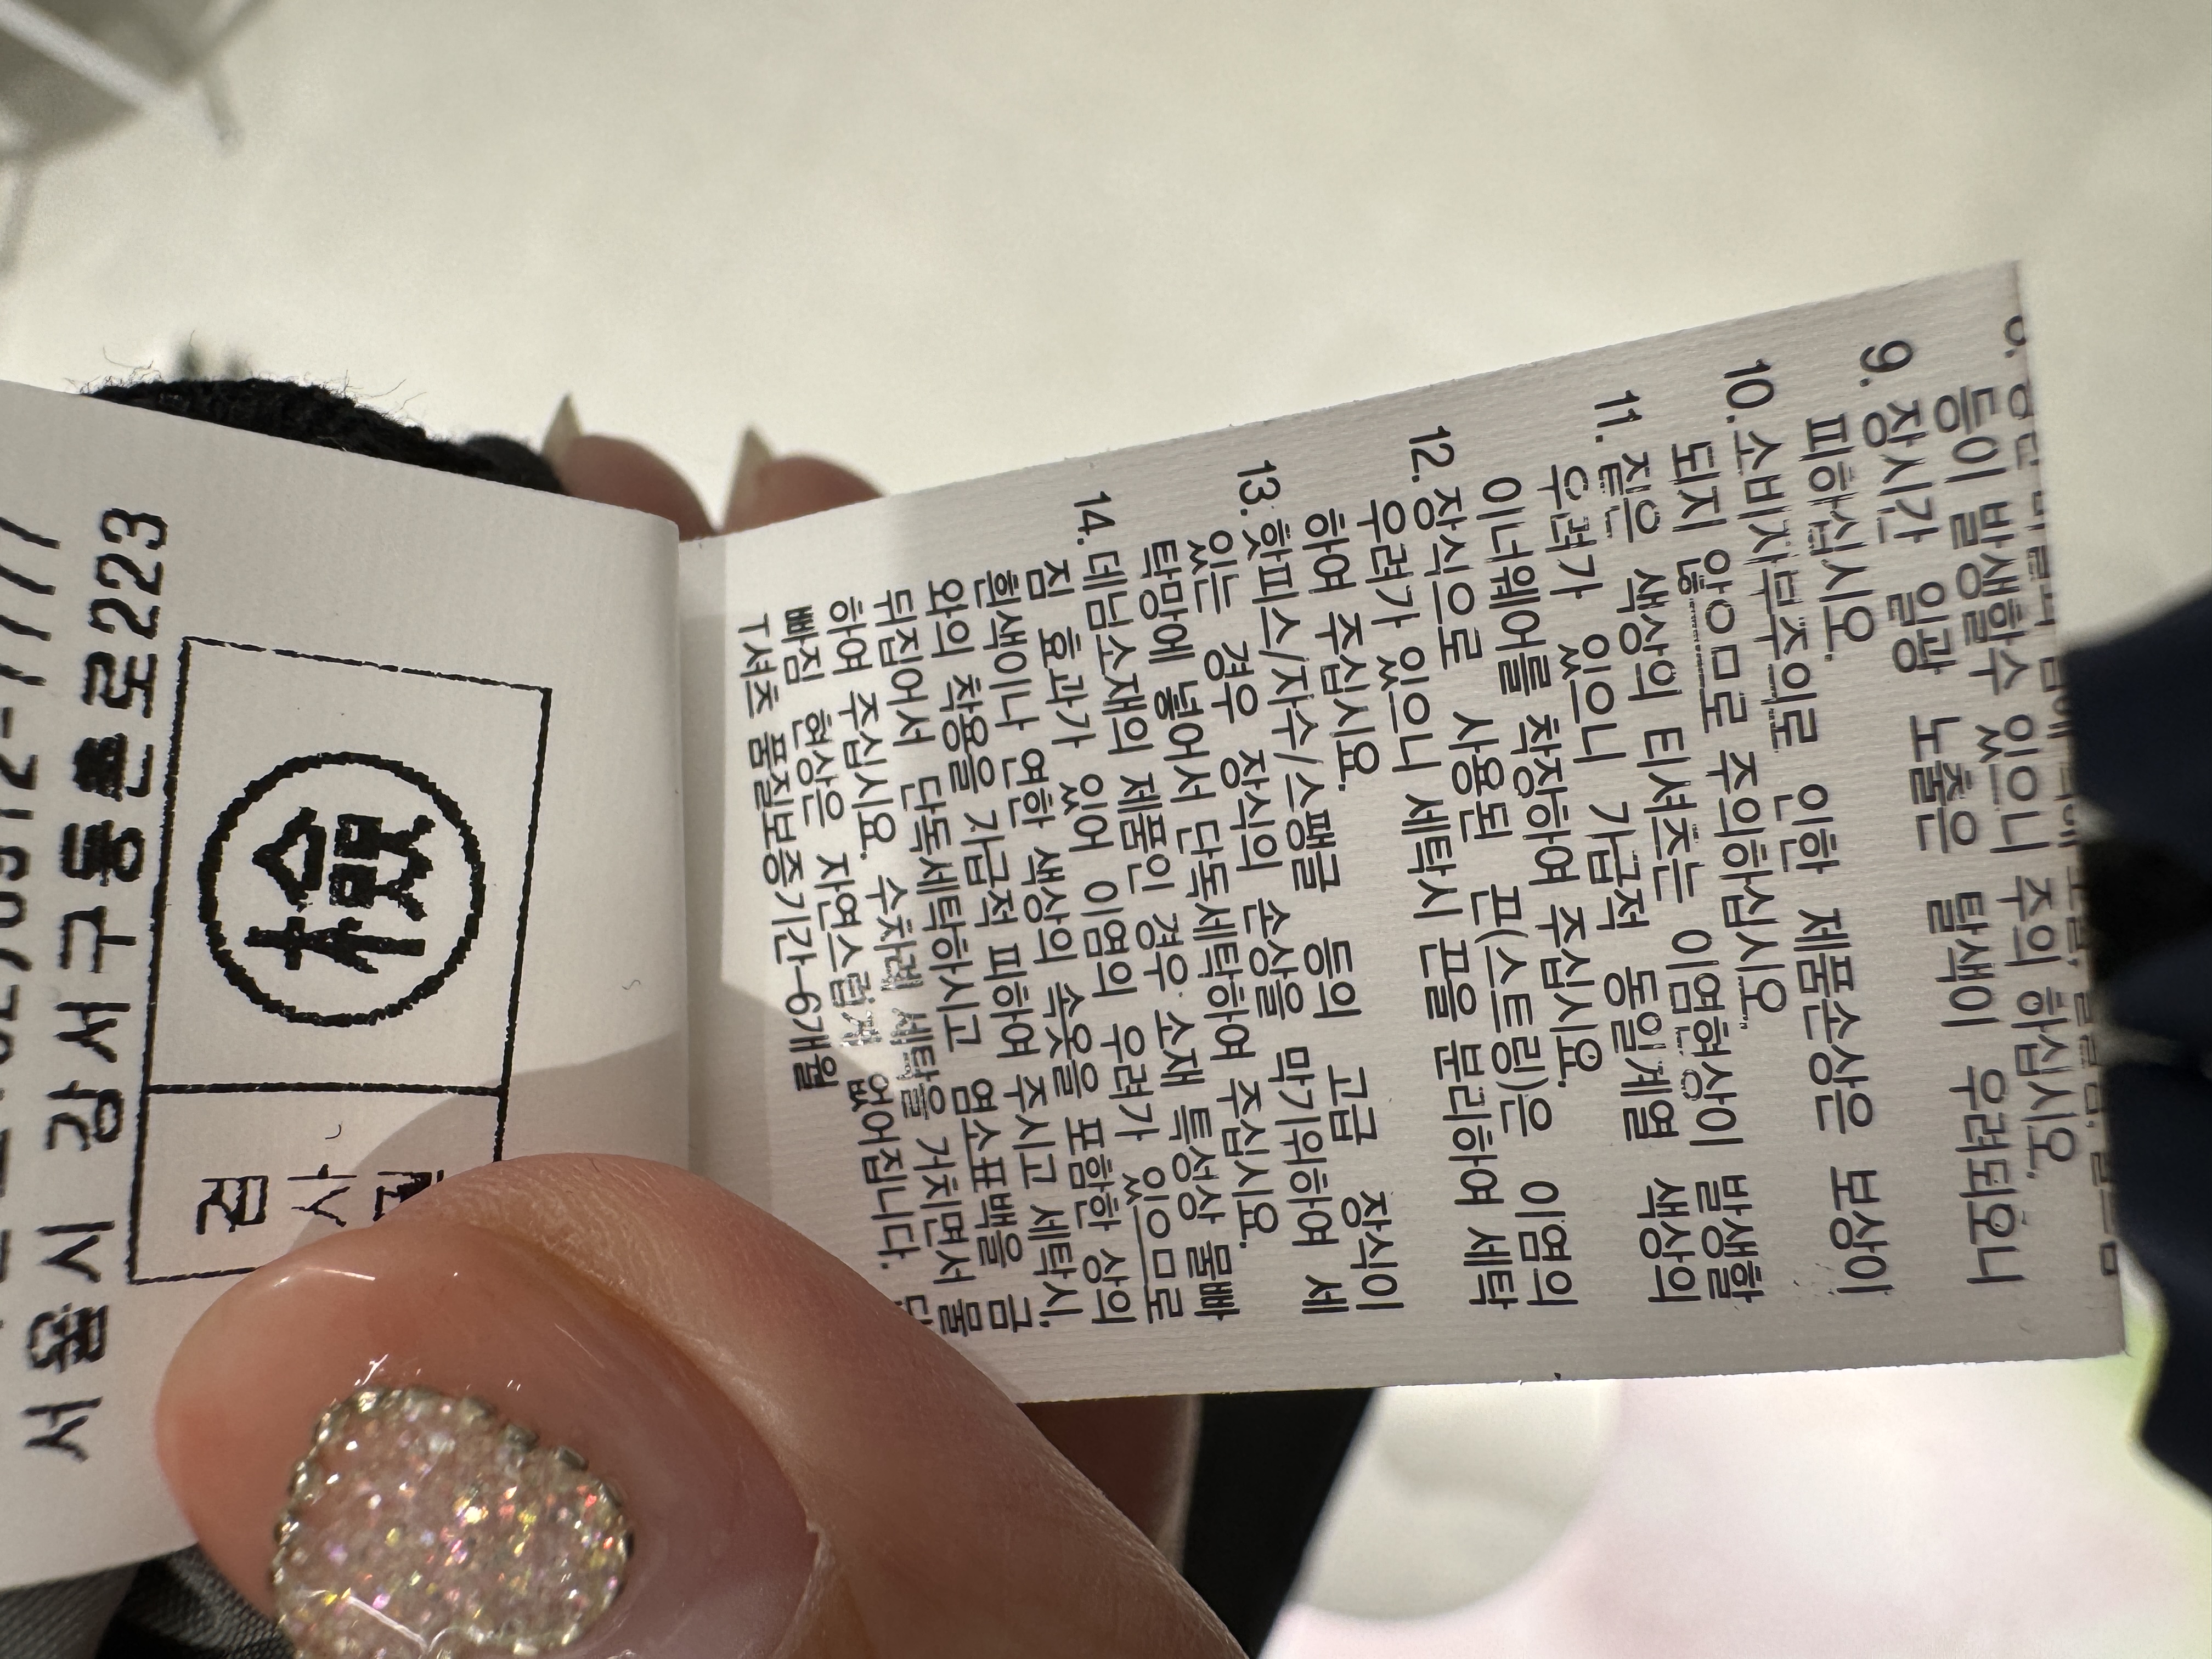 등이 발생할수 있으니 주의 하십시오.
9. 장시간 일광 노출은 탈색이 우려되오니
피하십시오.
10. 소비자부주의로 인한 제품손상은 보상이
되지 않으므로 주의하십시오.
11. 짙은 색상의 티셔츠는 이염현상이 발생할
우려가 있으니 가급적 동일계열 색상의
이너웨어를 착장하여 주십시요.
12. 장식으로 사용된 끈(스트링)은 이염의
우려가 있으니 세탁시 끈을 분리하여 세탁
하여 주십시요.
13. 핫피스/자수/스팽글 등의 고급 장식이
있는 경우 장식의 손상을 막기위하여 세
탁망에 넣어서 단독세탁하여 주십시요.
14. 데님소재의 제품인 경우 소재 특성상 물빠
짐 효과가 있어 이염의 우려가 있으므로
흰색이나 연한 색상의 속옷을 포함한 상의
와의 착용을 가급적 피하여 주시고 세탁시.
뒤집어서 단독세탁하시고 염소표백을 금
하여 주십시요. 수차례 세탁을 거치면서 물
빠짐 현상은 자연스럽게 없어집니다.
T셔츠 품질보증기간-6개월
서울시 강서구등촌로223
檢